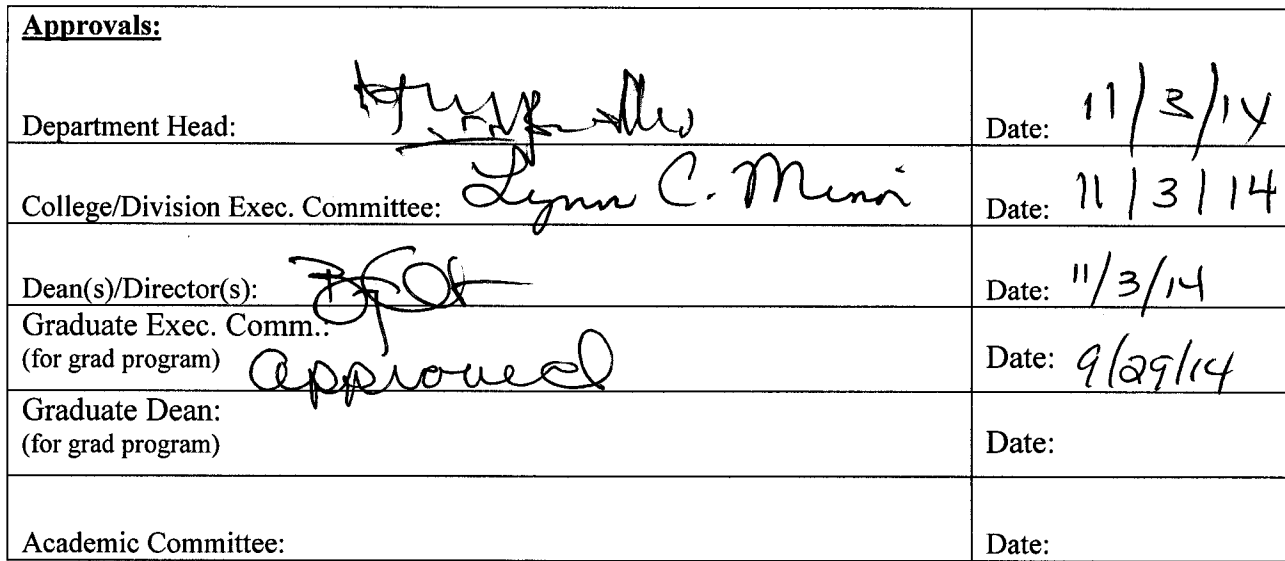 Approvals:
Department Head: Date: 11/3/14
College/Division Exec. Committee: Lynn C. Minor Date: 11/3/14
Dean(s)/Director(s): Date: 11/3/14
Graduate Exec. Comm.:
(for grad program) approved Date: 9/29/14
Graduate Dean:
(for grad program) Date:
Academic Committee: Date: